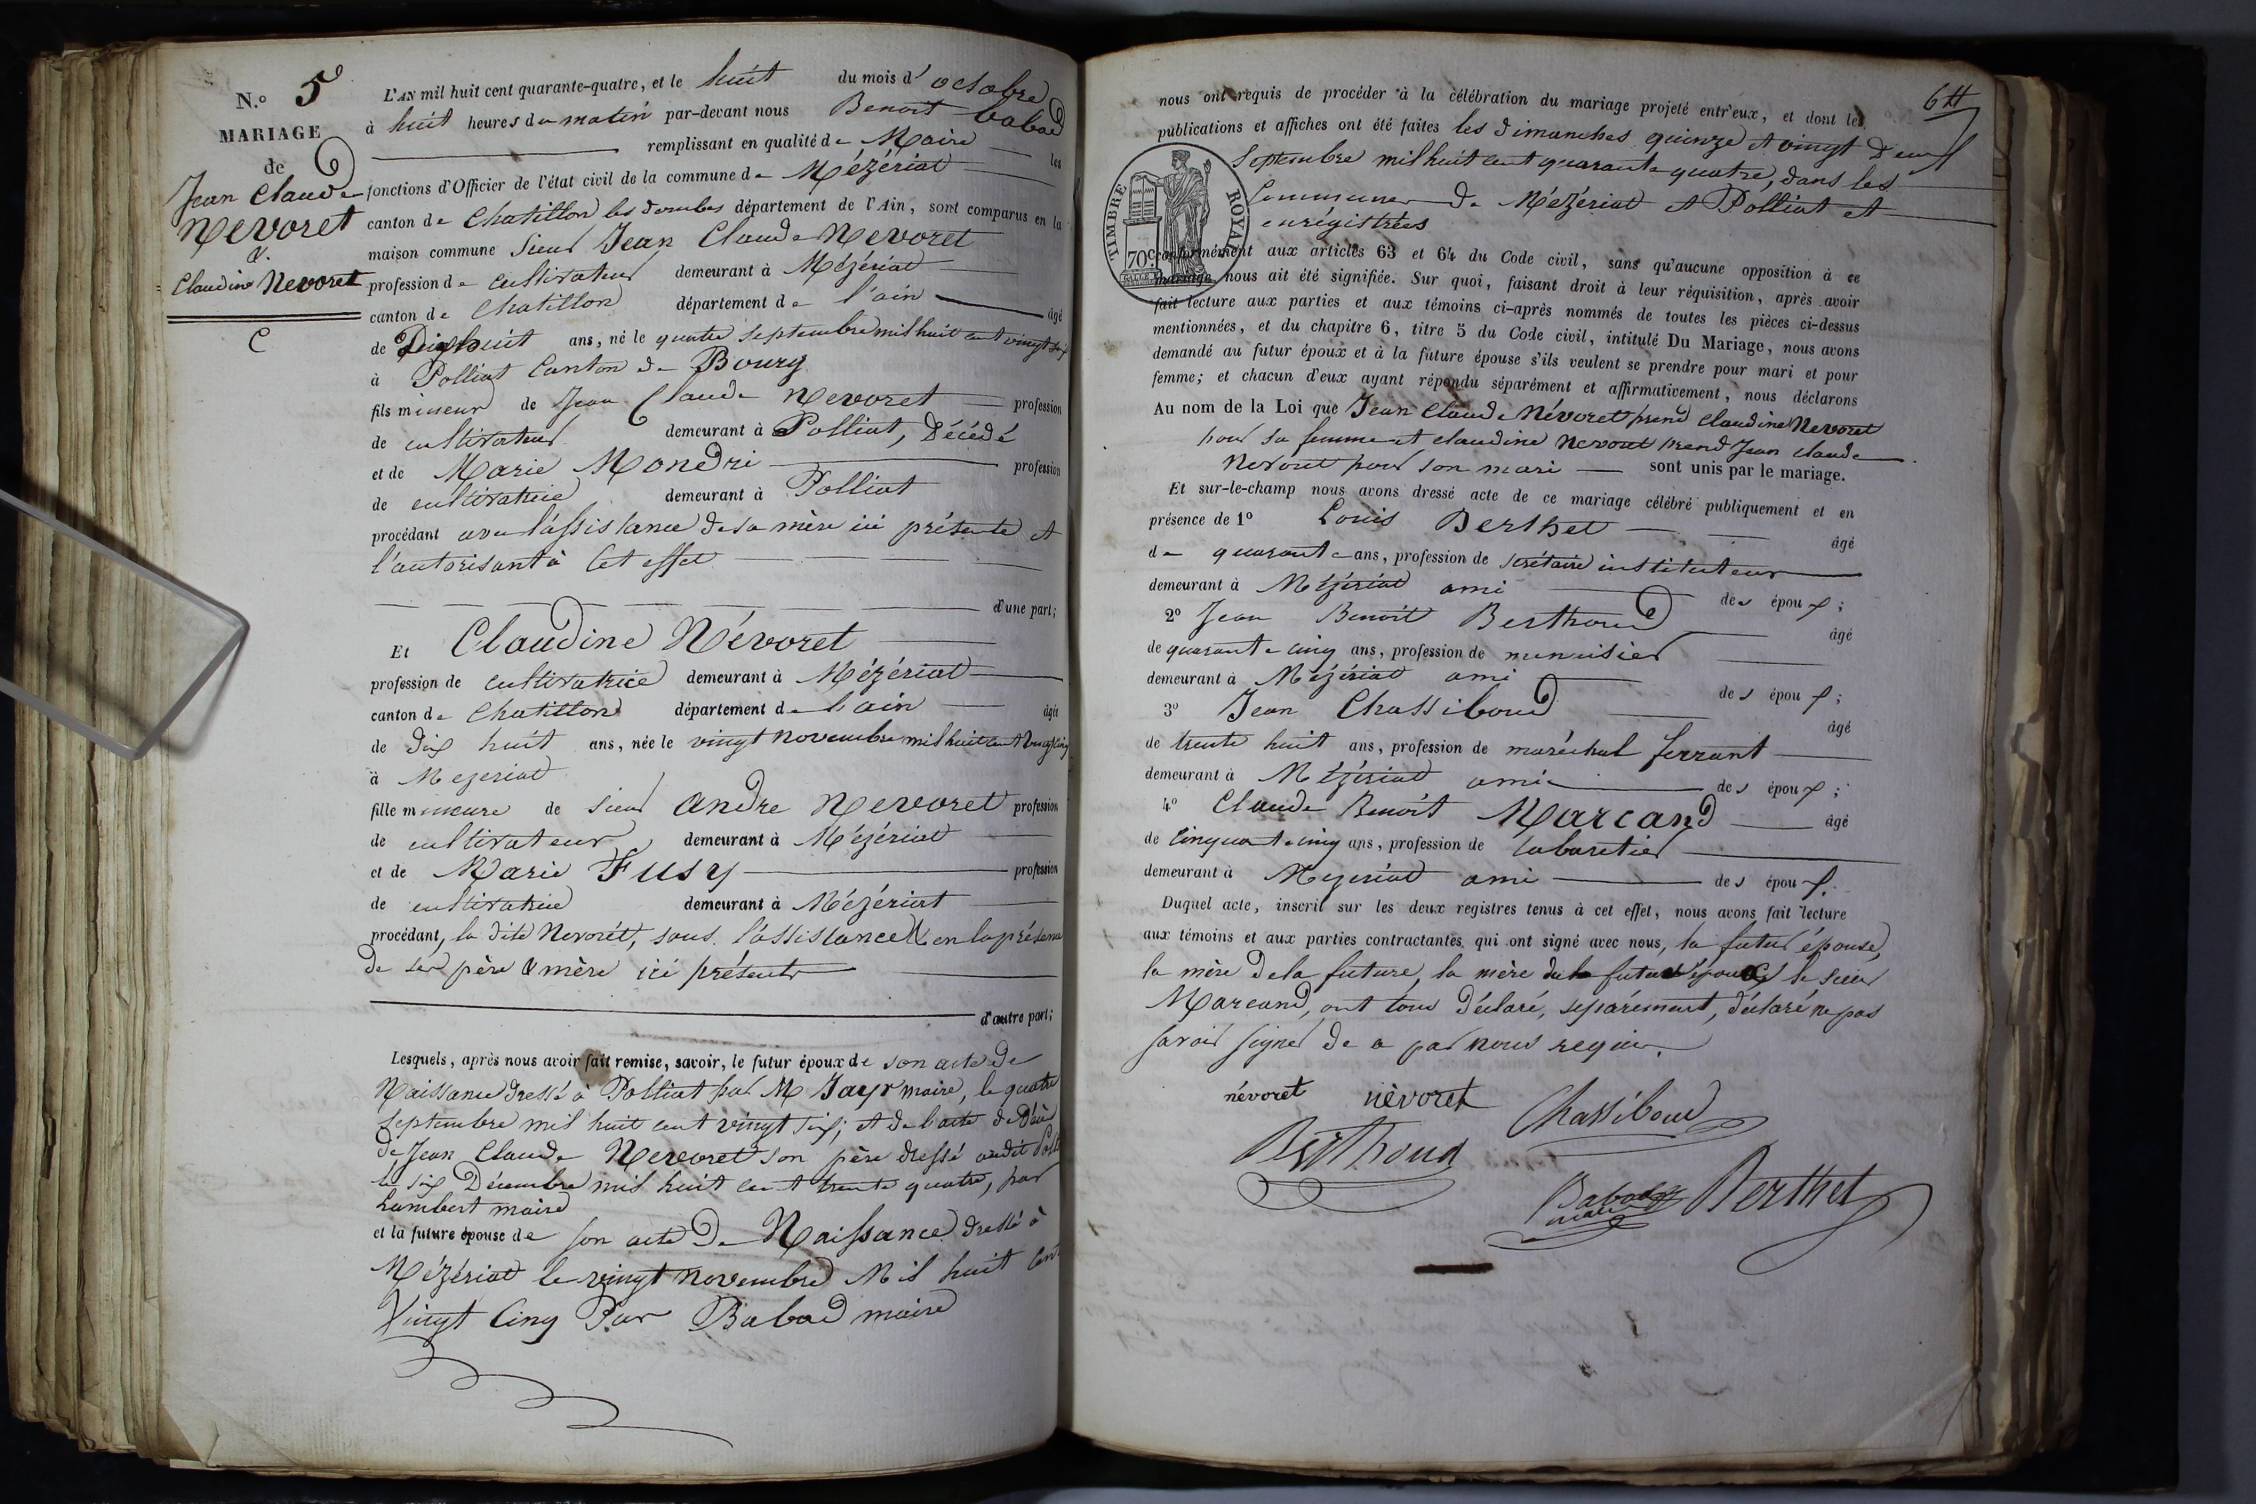 N.o 5
MARIAGE
de
Jean Claude
Nevoret
&
Claudine Nevoret
C
L'AN mil huit cent quarante-quatre, et le huit du mois d' octobre
à huit heures du matin par-devant nous Benoit Babad
remplissant en qualité de Maire les
fonctions d'Officier de l'état civil de la commune de Mézériat
canton de Chatillon les dombes département de l'Ain, sont comparus en la
maison commune Sieur Jean Claude Nevoret
profession de cultivateur demeurant à Mézériat
canton de Chatillon département de l'ain âgé
de Dix huit ans, né le quatre septembre mil huit cent vingt six
à Polliat Canton de Bourg
fils mineur de Jean Claude Nevoret profession
de cultivateur demeurant à Polliat, Décédé
et de Marie Mondri profession
de cultivatrice demeurant à Polliat
procédant avec l'assistance de sa mère ici présente et
l'autorisant à Cet effet
d'une part;
Et Claudine Névoret
profession de cultivatrice demeurant à Mézériat
canton de Chatillon département de l'ain âgée
de dix huit ans, née le vingt novembre mil huit cent vingt cinq
à Mezeriat
fille mineure de sieur andre Nevoret profession
de cultivateur demeurant à Mézériat
et de Marie Fusy profession
de cultivatrice demeurant à Mézériat
procédant, la dite Nevorét, sous l'assistance & en la présence
de ses père & mère ici présents
d'autre part;
Lesquels, après nous avoir fait remise, savoir, le futur époux de son acte de
Naissance dressé à Polliat par M Jayr maire, le quatre
septembre mil huit cent vingt six; et de l'acte de Décès
de Jean Claude Nevoret son père dressé audit
le six Décembre mil huit cent trente quatre, par
Lambert maire
et la future épouse de son acte De Naissance dressé à
Mézériat le vingt novembre Mil huit Cent
Vingt Cinq Par Babad maire
64
nous ont requis de procéder à la célébration du mariage projeté entr'eux, et dont les
publications et affiches ont été faites les dimanches quinze et vingt Deux
septembre mil huit cent quarante quatre, dans les
Communes De Mézériat et Polliat et
enrégistrées
TIMBRE ROYAL
70c
conformément aux articles 63 et 64 du Code civil, sans qu'aucune opposition à ce
mariage nous ait été signifiée. Sur quoi, faisant droit à leur réquisition, après avoir
fait lecture aux parties et aux témoins ci-après nommés de toutes les pièces ci-dessus
mentionnées, et du chapitre 6, titre 5 du Code civil, intitulé Du Mariage, nous avons
demandé au futur époux et à la future épouse s'ils veulent se prendre pour mari et pour
femme; et chacun d'eux ayant répondu séparément et affirmativement, nous déclarons
Au nom de la Loi que Jean Claude Névoret prend Claudine Nevoret
pour sa femme et claudine Nevoret prend Jean claude
Nevoret pour son mari sont unis par le mariage.
Et sur-le-champ nous avons dressé acte de ce mariage célébré publiquement et en
présence de 1o Louis Berthet âgé
de quarante ans, profession de secrétaire instituteur
demeurant à Mézériat ami des époux;
2o Jean Benoit Berthoud âgé
de quarante cinq ans, profession de menuisier
demeurant à Mézériat ami des époux;
3o Jean Chassiboud âgé
de trente huit ans, profession de maréchal ferrant
demeurant à Mézériat ami des époux;
4o Claude Benoit Marcand âgé
de Cinquante cinq ans, profession de Cabaretier
demeurant à Mezeriat ami des époux.
Duquel acte, inscrit sur les deux registres tenus à cet effet, nous avons fait lecture
aux témoins et aux parties contractantes qui ont signé avec nous, la futur épouse,
la mère de la future, la mère du futur époux & le sieur
Marcand, ont tous déclaré, séparément, déclaré ne pas
savoir signer de ce par nous requis.
névoret névoret Chassiboud
Berthoud
Babad maire Berthet